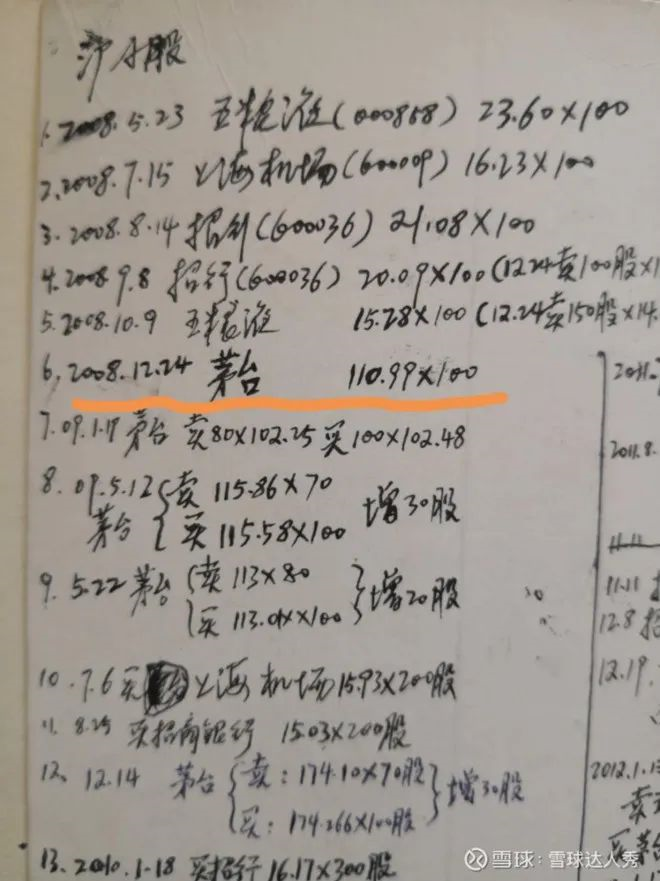 沪A股
1. 2008.5.23 五粮液(000858) 23.60×100
2. 2008.7.15 上海机场(600009) 16.23×100
3. 2008.8.14 招行(600036) 21.08×100
4. 2008 9.8 招行(600036) 20.09×100(12.24卖100股×1
5. 2008.10.9 五粮液 15.28×100(12.24卖150股×14.
6. 2008.12.24 茅台 110.99×100
7. 09.1.19 茅台 卖80×102.25 买100×102.48
8. 09.5.12 茅台 卖 115.86×70
买 115.58×100 增30股
9. 5.22 茅台 卖 113×80
买 113.01×100 增20股
10. 7.6 买 上海机场15.93×200股
11. 8.25 买招商银行 15.03×200股
12. 12.14 茅台 卖:174.10×70股
买:174.266×100股 增30股
13. 2010.1.18 买招行16.17×300股
2011.
2011.8.
11.11
11.11
12.8 招
12.19.
2012.1.13
卖
买茅台
雪球:雪球达人秀